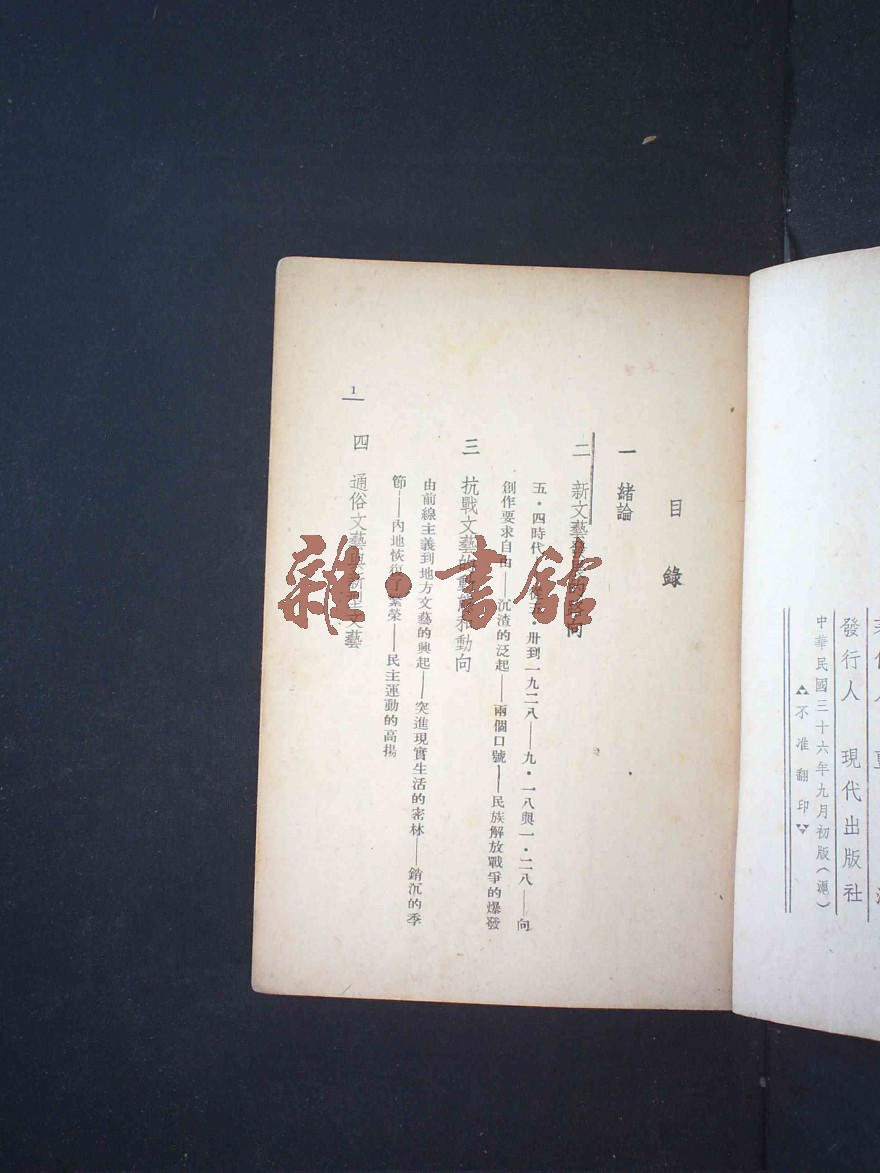 發行人 現代出版社
中華民國三十六年九月初版(滬)
不准翻印
目錄
一 緒論
二 新文藝 的路向
五·四時代——從五·卅到一九二八——九·一八與一·二八——向
創作要求自由——沉渣的泛起——兩個口號——民族解放戰爭的爆發
三 抗戰文藝的動態和動向
由前線主義到地方文藝的興起——突進現實生活的密林——銷沉的季
節——內地恢復了繁榮——民主運動的高揚
四 通俗文藝與新型文藝
1
雜·書館